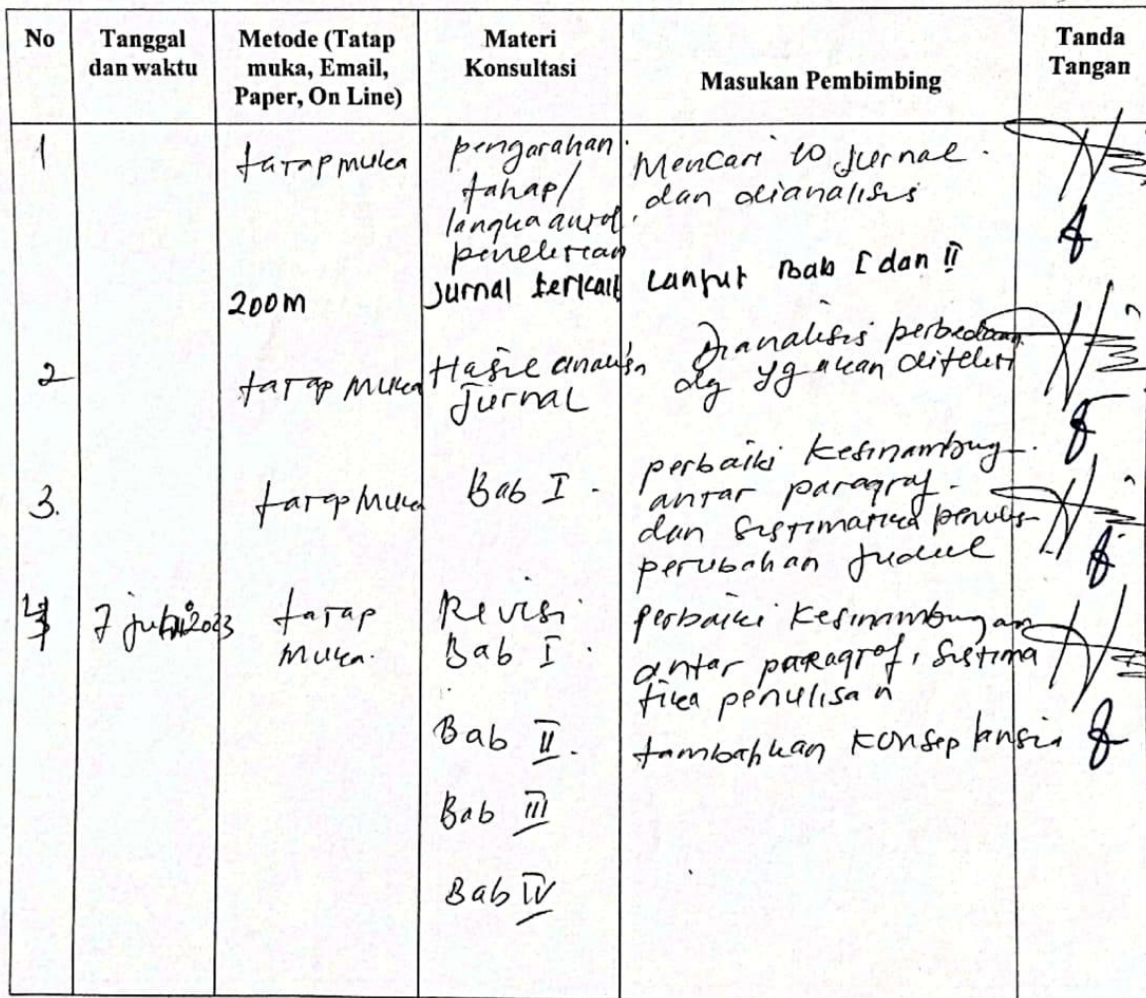 No Tanggal dan waktu Metode (Tatap muka, Email, Paper, On Line) Materi Konsultasi Masukan Pembimbing Tanda Tangan
1 tatap muka pengarahan tahap/ Mencari 10 jurnal.
dan dianalisis
penelitian
200m Jurnal terkait Lanjut Bab I dan II
2 tatap muka Hasil analisa Jurnal Dianalisis perbedaan
dg yg akan diteliti
3. tatap muka Bab I. perbaiki Kesinambung.
antar paragraf.
dan sistimatika penulis
perubahan judul
4 7 2023 tatap muka. Revisi Bab I. perbaiki Kesinambungan
antar paragraf, Sistima
tika penulisan
Bab II. tambahkan Konsep lansia
Bab III
Bab IV